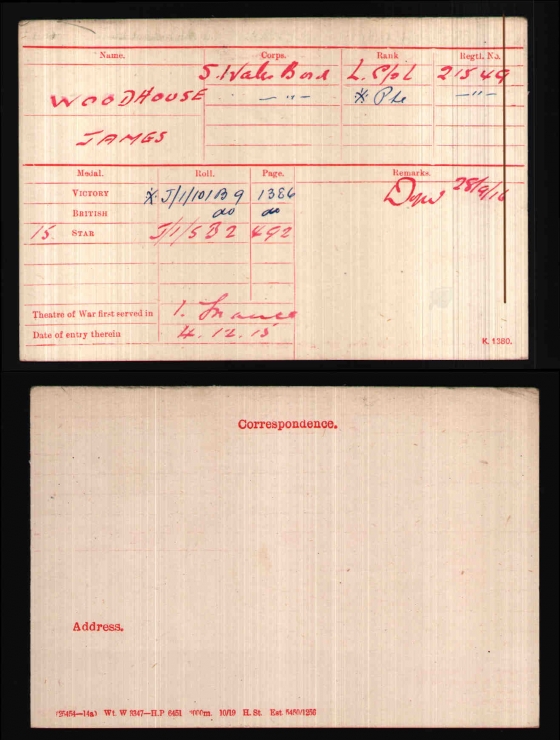 Name. Corps. Rank Regtl. No.
S. Wales Bord L. Cpl 21549
WOODHOUSE — " — * Pte — " —
JAMES
Medal. Roll. Page. Remarks.
VICTORY * J/1/101B9 1386 28/9/16
BRITISH do do
15 STAR J/1/5B2 492
Theatre of War first served in 1. France
Date of entry therein 4.12.15
K. 1380.
Correspondence.
Address.
Wt. W 5347—H.P 6451 10/19 H. St.